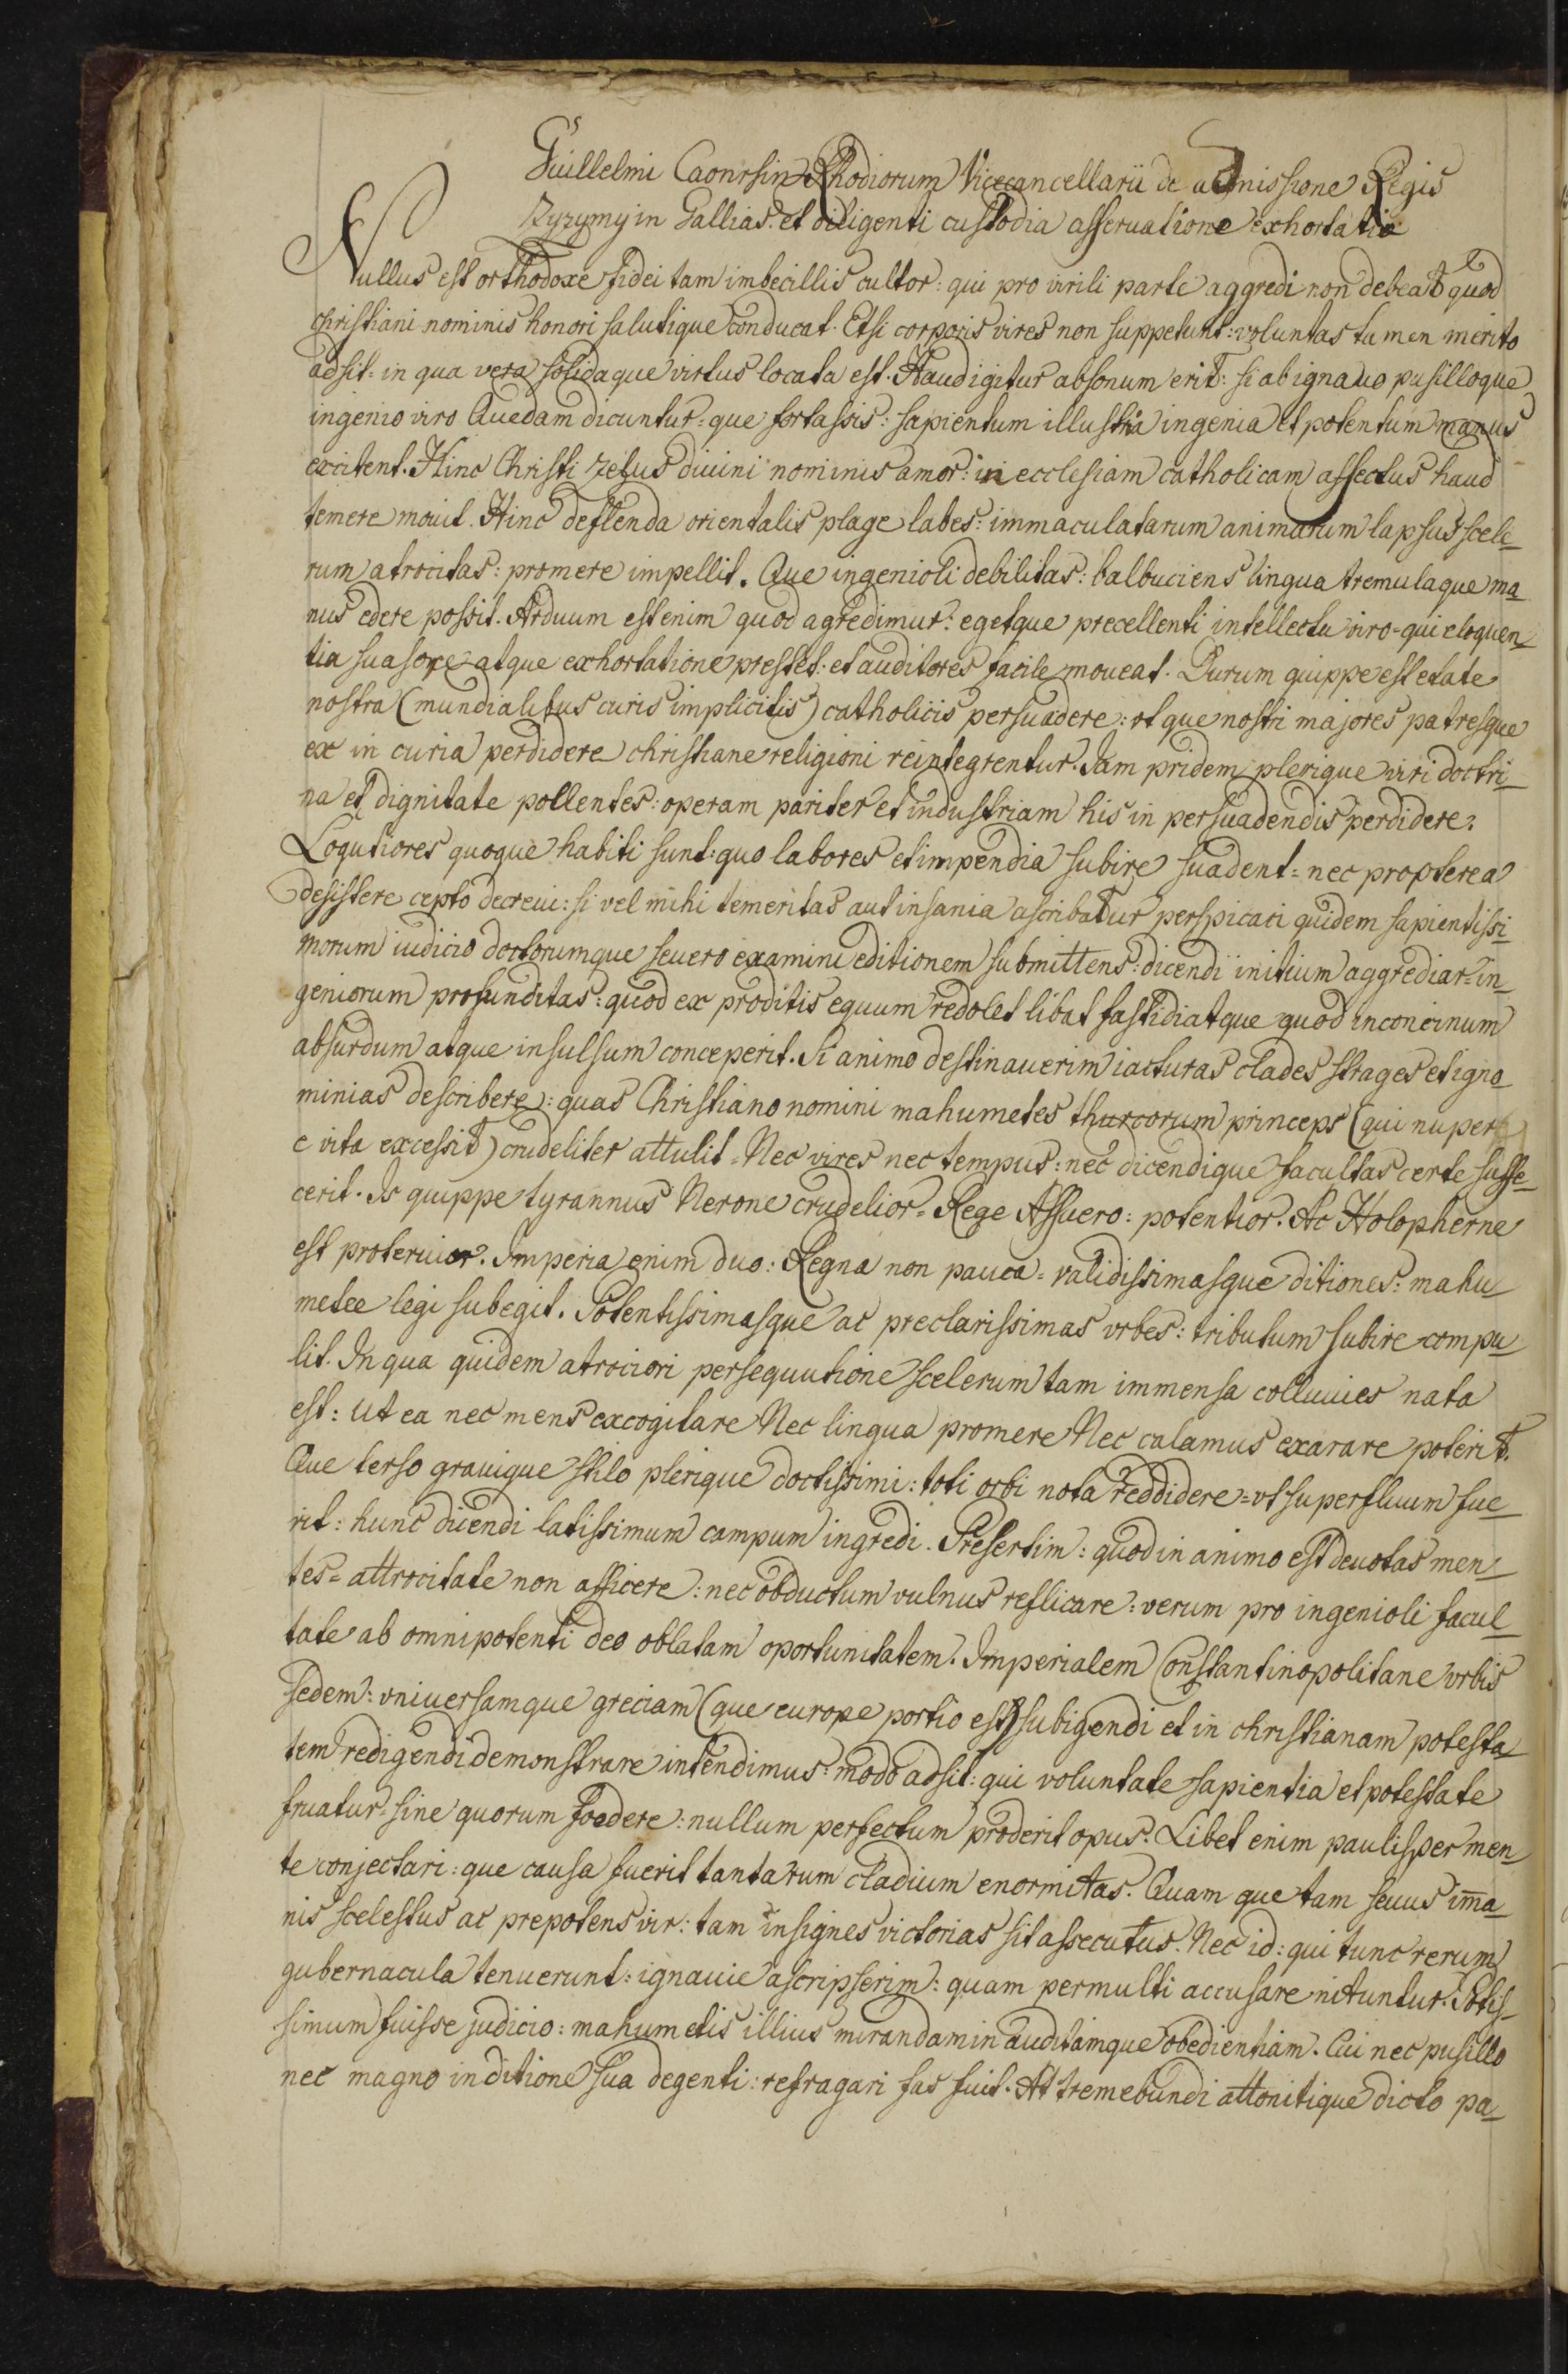 Guillelmi Caonrsin Rhodiorum Vicecancellarii de admissione Regis
Zyzymy in Gallias: et diligenti custodia asseruatione exhortatio
Nullus est orthodoxe fidei tam imbecillis cultor: qui pro virili parte aggredi non debeat quod
christiani nominis honori salutique conducat. Etsi corporis vires non suppetunt: voluntas tamen merito
adsit: in qua vera solidaque virtus locata est. Haud igitur absonum erit: si ab ignauo pusilloque
ingenio viro Quedam dicuntur: que fortassis: sapientum illustria ingenia et potentum manus
excitent. Hinc Christi zelus diuini nominis amor: in ecclesiam catholicam affectus haud
temere mouit. Hinc deflenda orientalis plage labes: immaculatarum animarum lapsus scele-
rum atrocitas: promere impellit. Que ingenioli debilitas: balbuciens lingua tremulaque ma-
nus edere possit. Arduum est enim quod agredimur: egetque precellenti intellectu viro: qui eloquen-
tia suasore atque exhortatione prestet: et auditores facile moueat. Durum quippe est etate
nostra (mundialibus curis implicitis) catholicis persuadere: vt que nostri majores patresque
ex in curia perdidere christiane religioni reintegrentur. Jam pridem plerique viri doctri-
na et dignitate pollentes: operam pariter et industriam his in persuadendis perdidere:
Loqutiores quoque habiti sunt: quo labores et impendia subire suadent: nec propterea
desistere cepto decreui: si vel mihi temeritas aut insania ascribatur perspicaci quidem sapientissi-
morum iudicio doctorumque seuero examini editionem submittens: dicendi initium aggrediar: in-
geniorum profunditas: quod ex proditis equum redolet libat fastidiatque quod inconcinum
absurdum atque insulsum conceperit. Si animo destinauerim iacturas clades strages et igno-
minias describere: quas Christiano nomini mahumetes thurcorum princeps (qui nuper
e vita excessit) crudeliter attulit: Nec vires nec tempus: nec dicendique facultas certe suffe-
cerit. Is quippe tyrannus Nerone crudelior: Rege Assuero: potentior. Ac Holopherne
est proteruior. Imperia enim duo: Regna non pauca: validissimasque ditiones: mahu-
metee legi subegit. Potentissimasque ac preclarissimas vrbes: tributum subire compu-
lit. In qua quidem atrociori persequutione scelerum tam immensa colluuies nata
est: ut ea nec mens excogitare Nec lingua promere Nec calamus exarare poterit.
Que terso grauique stilo plerique doctissimi: toti orbi nota reddidere: vt superfluum fue-
rit: hunc dicendi latissimum campum ingredi. Presertim: quod in animo est deuotas men-
tes: attrocitate non afficere: nec obductum vulnus reflicare: verum pro ingenioli facul-
tate ab omnipotenti deo oblatam oportunitatem. Imperialem Constantinopolitane vrbis
sedem: vniuersamque greciam (que europe portio est) subigendi et in christianam potesta-
tem redigendi demonstrare intendimus: modo adsit: qui voluntate sapientia et potestate
fruatur: sine quorum foedere: nullum perfectum proderit opus. Libet enim paulisper men-
te conjectari: que causa fuerit tantarum cladium enormitas. Quam que tam seuus im̄a-
nis scelestus ac prepotens vir: tam insignes victorias sit assecutus. Nec id: qui tunc rerum
gubernacula tenuerunt: ignauie ascripserim: quam permulti accusare nituntur. Potis-
simum fuisse judicio: mahumetis illius mirandam in auditamque obedientiam. Cui nec pusillo
nec magno in ditione sua degenti: refragari fas fuit. At tremebundi attonitique dicto pa-